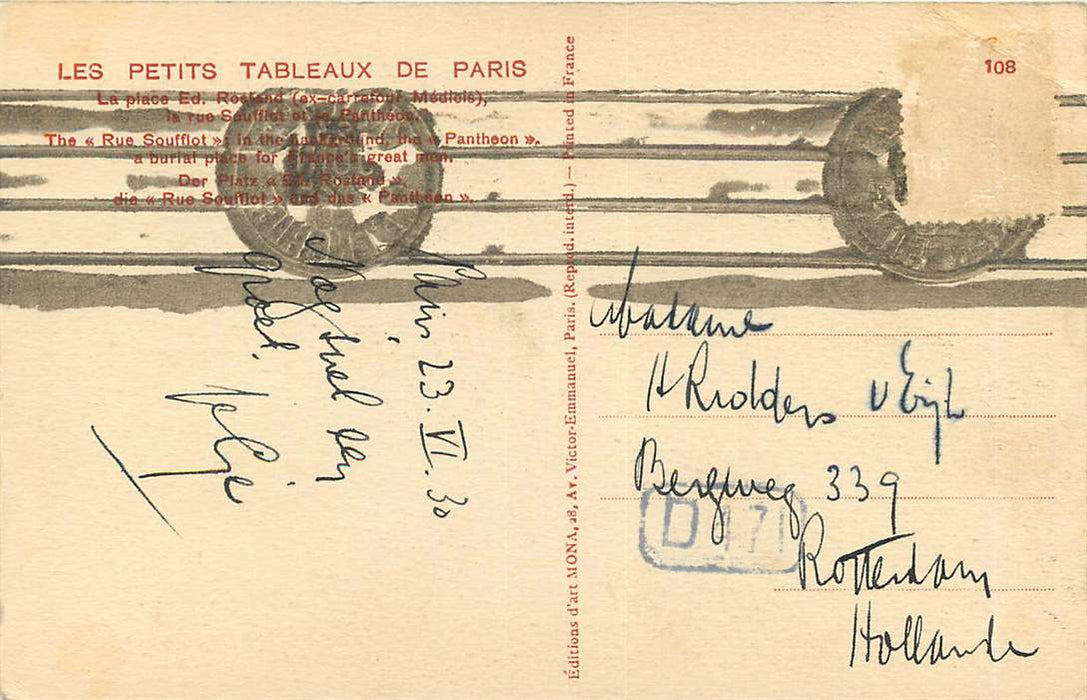 LES PETITS TABLEAUX DE PARIS
La place Ed. Rostand (ex-carrefour Médicis),
la rue Soufflot et le Panthéon.
The « Rue Soufflot »; in the background, the « Pantheon ».
a burial place for France's great men.
Der Platz « Ed. Rostand ».
die « Rue Soufflot » und das « Pantheon ».
108
Éditions d'art MONA, 28, Av. Victor-Emmanuel, Paris. (Reprod. interd.) — Printed in France
Paris 23.VI.30
Nog veel
groet.
Madame
H Ridders v Eijk
Bergweg 339
Rotterdam
Hollande
D 171